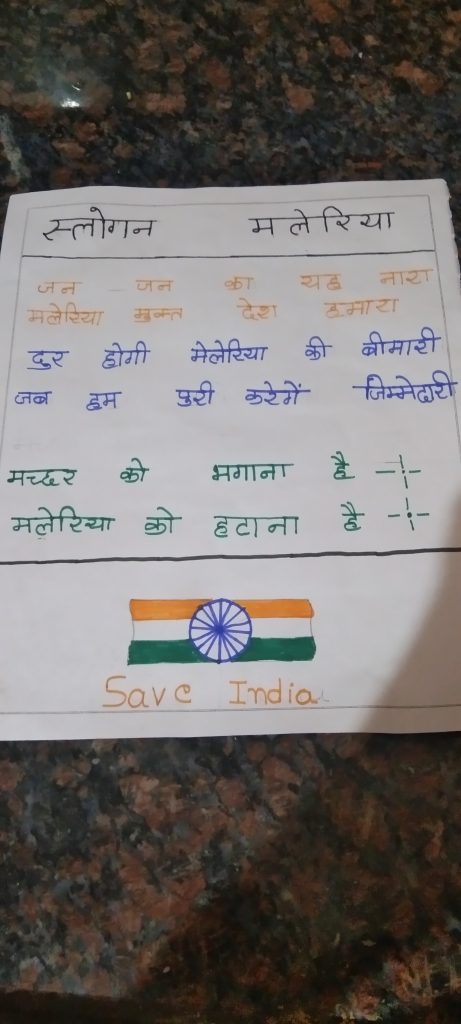 स्लोगन मलेरिया
जन जन का यह नारा
मलेरिया मुक्त देश हमारा
दुर होगी मेलेरिया की बीमारी
जब हम पुरी करेगें जिम्मेदारी
मच्छर को भगाना है
मलेरिया को हटाना है
Save India